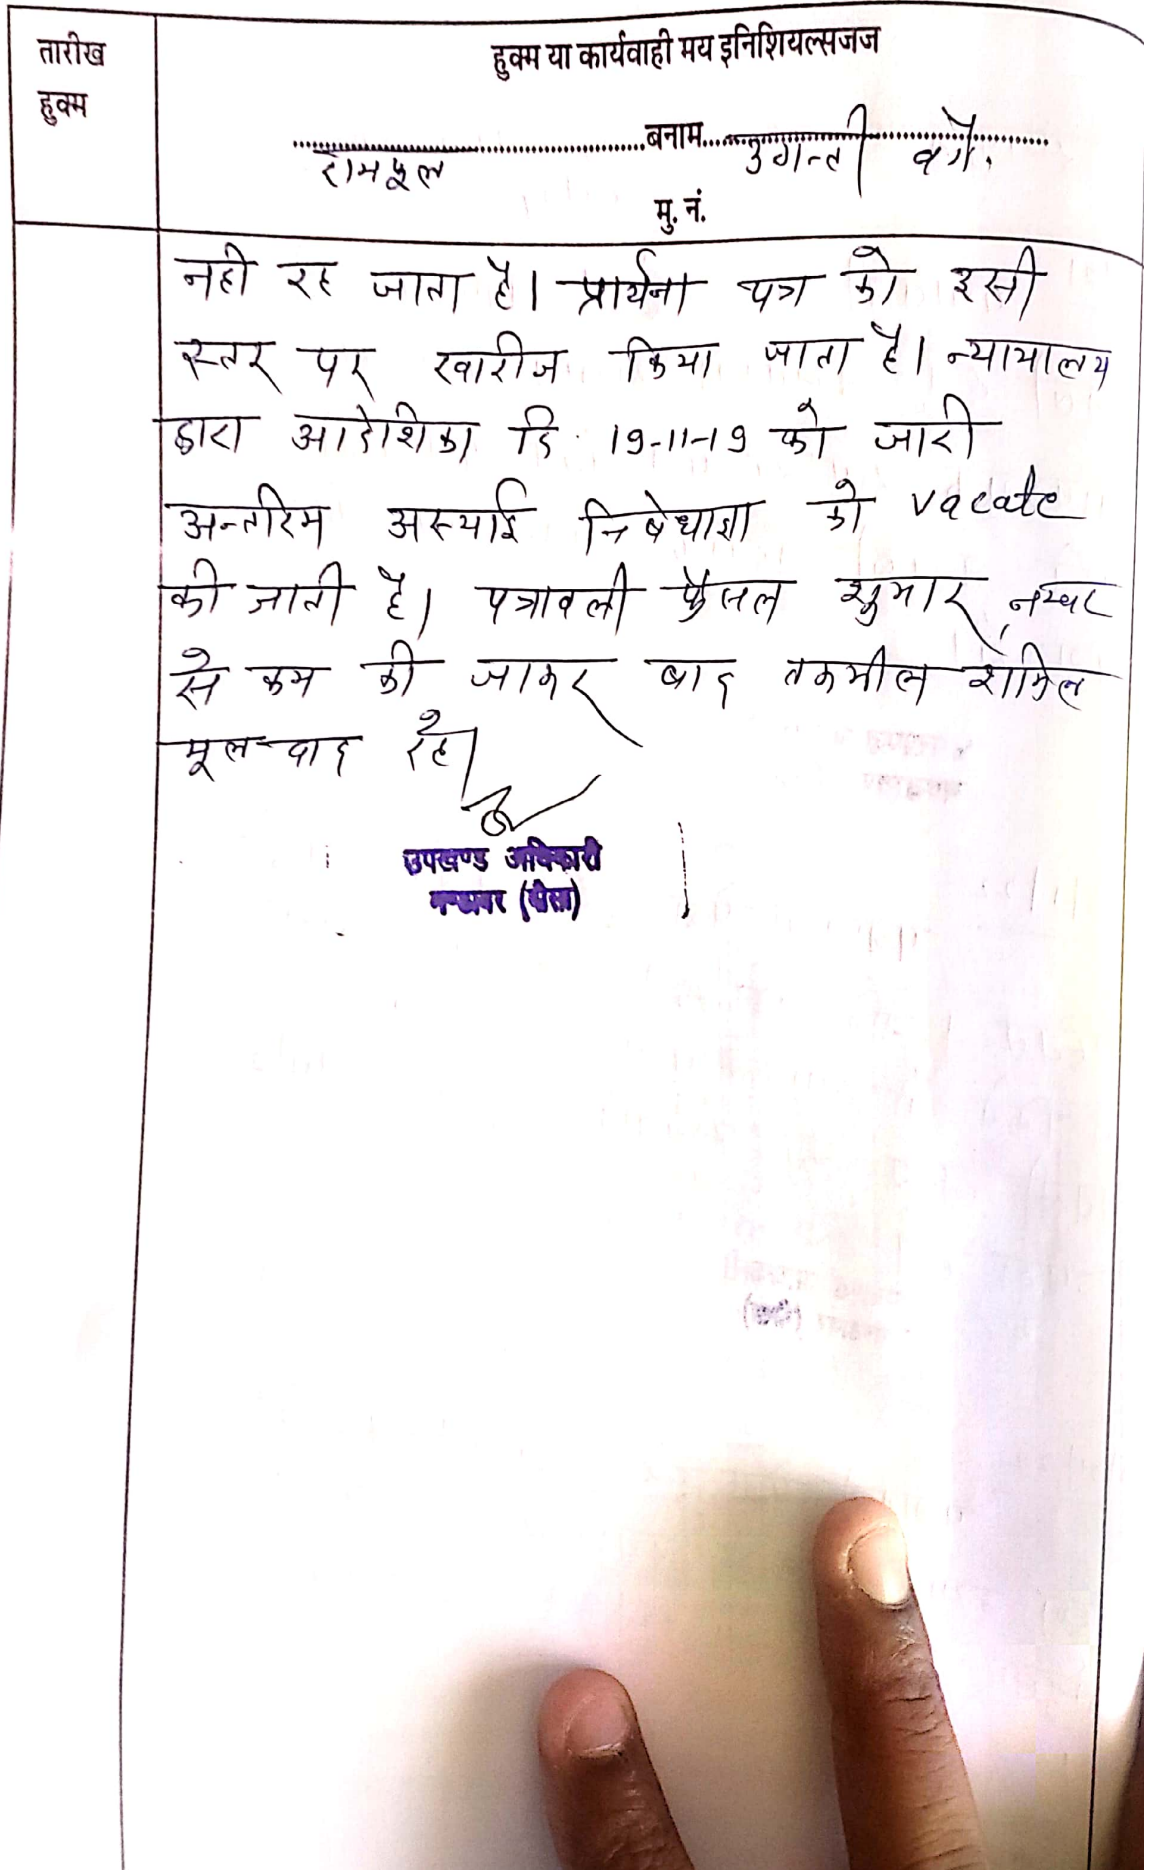 तारीख
हुक्म
हुक्म या कार्यवाही मय इनिशियल्सजज
रामफूल बनाम उगन्ती वगै.
मु. नं.
नही रह जाता है। प्रार्थना पत्र को इसी
स्तर पर खारीज किया जाता है। न्यायालय
द्वारा आदेशिका दि. 19-11-19 को जारी
अन्तरिम अस्थाई निषेधाज्ञा को vacate
की जाती है। पत्रावली फैसल शुमार, नम्बर
से कम की जाकर बाद तकमील शामिल
मूल वाद रहे।
उपखण्ड अधिकारी
मण्डावर (दौसा)